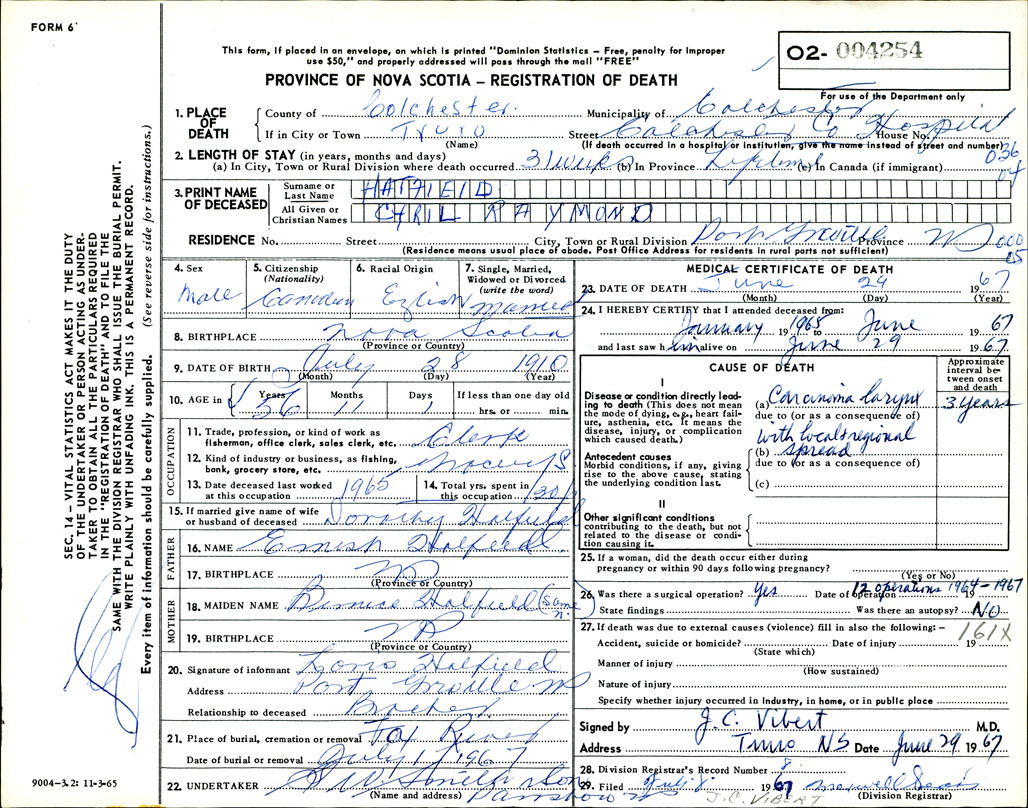 FORM 6
This form, if placed in an envelope, on which is printed "Dominion Statistics – Free, penalty for improper
use $50," and properly addressed will pass through the mail "FREE"
O2- 004254
For use of the Department only
PROVINCE OF NOVA SCOTIA – REGISTRATION OF DEATH
SEC. 14 – VITAL STATISTICS ACT MAKES IT THE DUTY
OF THE UNDERTAKER OR PERSON ACTING AS UNDER-
TAKER TO OBTAIN ALL THE PARTICULARS REQUIRED
IN THE "REGISTRATION OF DEATH" AND TO FILE THE
SAME WITH THE DIVISION REGISTRAR WHO SHALL ISSUE THE BURIAL PERMIT.
WRITE PLAINLY WITH UNFADING INK. THIS IS A PERMANENT RECORD.
Every item of information should be carefully supplied. (See reverse side for instructions.)
1. PLACE OF DEATH
County of Colchester Municipality of Colchester
If in City or Town Truro Street Colchester Co Hospital House No.
(Name) (If death occurred in a hospital or institution, give the name instead of street and number)
2. LENGTH OF STAY (in years, months and days) 036
(a) In City, Town or Rural Division where death occurred 3 weeks (b) In Province Lifetime (c) In Canada (if immigrant) 04
3. PRINT NAME OF DECEASED
Surname or Last Name HATFIELD
All Given or Christian Names CYRIL RAYMOND
RESIDENCE No. Street City, Town or Rural Division Port Greville Province NS 000
(Residence means usual place of abode. Post Office Address for residents in rural parts not sufficient) 05
4. Sex Male
5. Citizenship (Nationality) Canadian
6. Racial Origin English
7. Single, Married, Widowed or Divorced (write the word) Married
8. BIRTHPLACE Nova Scotia
(Province or Country)
9. DATE OF BIRTH July 28 1910
(Month) (Day) (Year)
10. AGE in Years 56 Months 11 Days 1 If less than one day old hrs. or min.
OCCUPATION
11. Trade, profession, or kind of work as fisherman, office clerk, sales clerk, etc. Clerk
12. Kind of industry or business, as fishing, bank, grocery store, etc.
13. Date deceased last worked at this occupation 1965
14. Total yrs. spent in this occupation 30
15. If married give name of wife or husband of deceased Dorothy Hatfield
FATHER
16. NAME Hatfield
17. BIRTHPLACE NS
(Province or Country)
MOTHER
18. MAIDEN NAME Bernice Hatfield (same n.)
19. BIRTHPLACE NS
(Province or Country)
20. Signature of informant Hatfield
Address Port Greville NS
Relationship to deceased Brother
21. Place of burial, cremation or removal Fox River
Date of burial or removal July 1 1967
22. UNDERTAKER Smith & Son
(Name and address) Parrsboro NS
MEDICAL CERTIFICATE OF DEATH
23. DATE OF DEATH June 29 1967
(Month) (Day) (Year)
24. I HEREBY CERTIFY that I attended deceased from:
January 1965 June 1967
and last saw him alive on June 29 1967
CAUSE OF DEATH
Approximate interval between onset and death
I
Disease or condition directly lead-
ing to death (This does not mean
the mode of dying, e.g., heart fail-
ure, asthenia, etc. It means the
disease, injury, or complication
which caused death.)
(a) Carcinoma larynx 3 years
due to (or as a consequence of)
with local & regional
(b) spread
due to (or as a consequence of)
(c)
Antecedent causes
Morbid conditions, if any, giving
rise to the above cause, stating
the underlying condition last.
II
Other significant conditions
contributing to the death, but not
related to the disease or condi-
tion causing it.
25. If a woman, did the death occur either during
pregnancy or within 90 days following pregnancy?
(Yes or No)
26. Was there a surgical operation? Yes Date of operation 12 operations 1964–1967 19
State findings Was there an autopsy? NO
27. If death was due to external causes (violence) fill in also the following:– 161X
Accident, suicide or homicide? Date of injury 19
(State which)
Manner of injury
(How sustained)
Nature of injury
Specify whether injury occurred in industry, in home, or in public place
Signed by J.C. Vibert M.D.
Address Truro NS Date June 29 1967
28. Division Registrar's Record Number 8.
29. Filed 1967
J.C. VIBERT (Division Registrar)
9004–3.2: 11-3-65